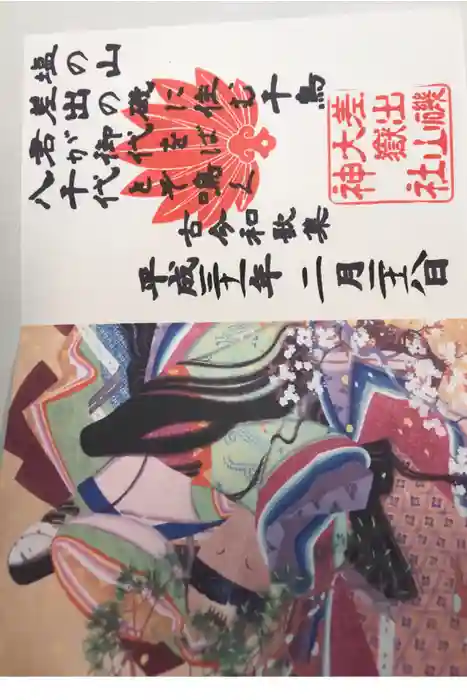 塩の山
差出の磯に住む千鳥
君が御代をば
八千代とぞ鳴く
古今和歌集
平成三十一年 二月二十八日
差出磯
大嶽山
神社